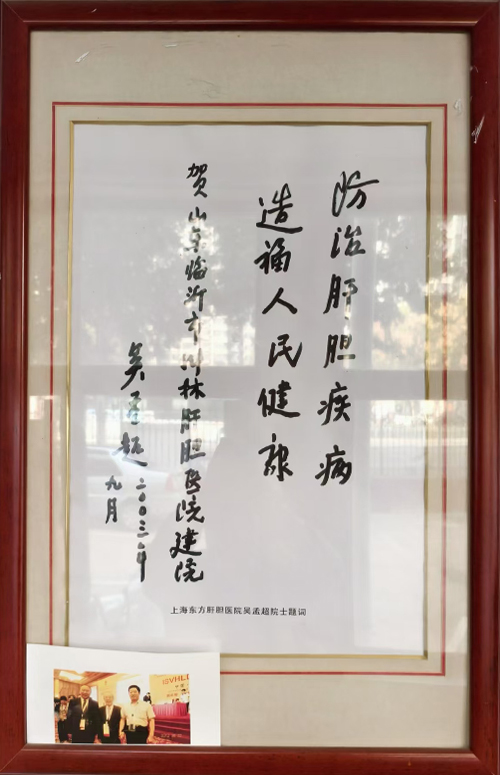 防治肝胆疾病
造福人民健康
贺山东临沂市沂林肝胆医院建院
吴孟超 二〇〇三年
九月
上海东方肝胆医院吴孟超院士题词